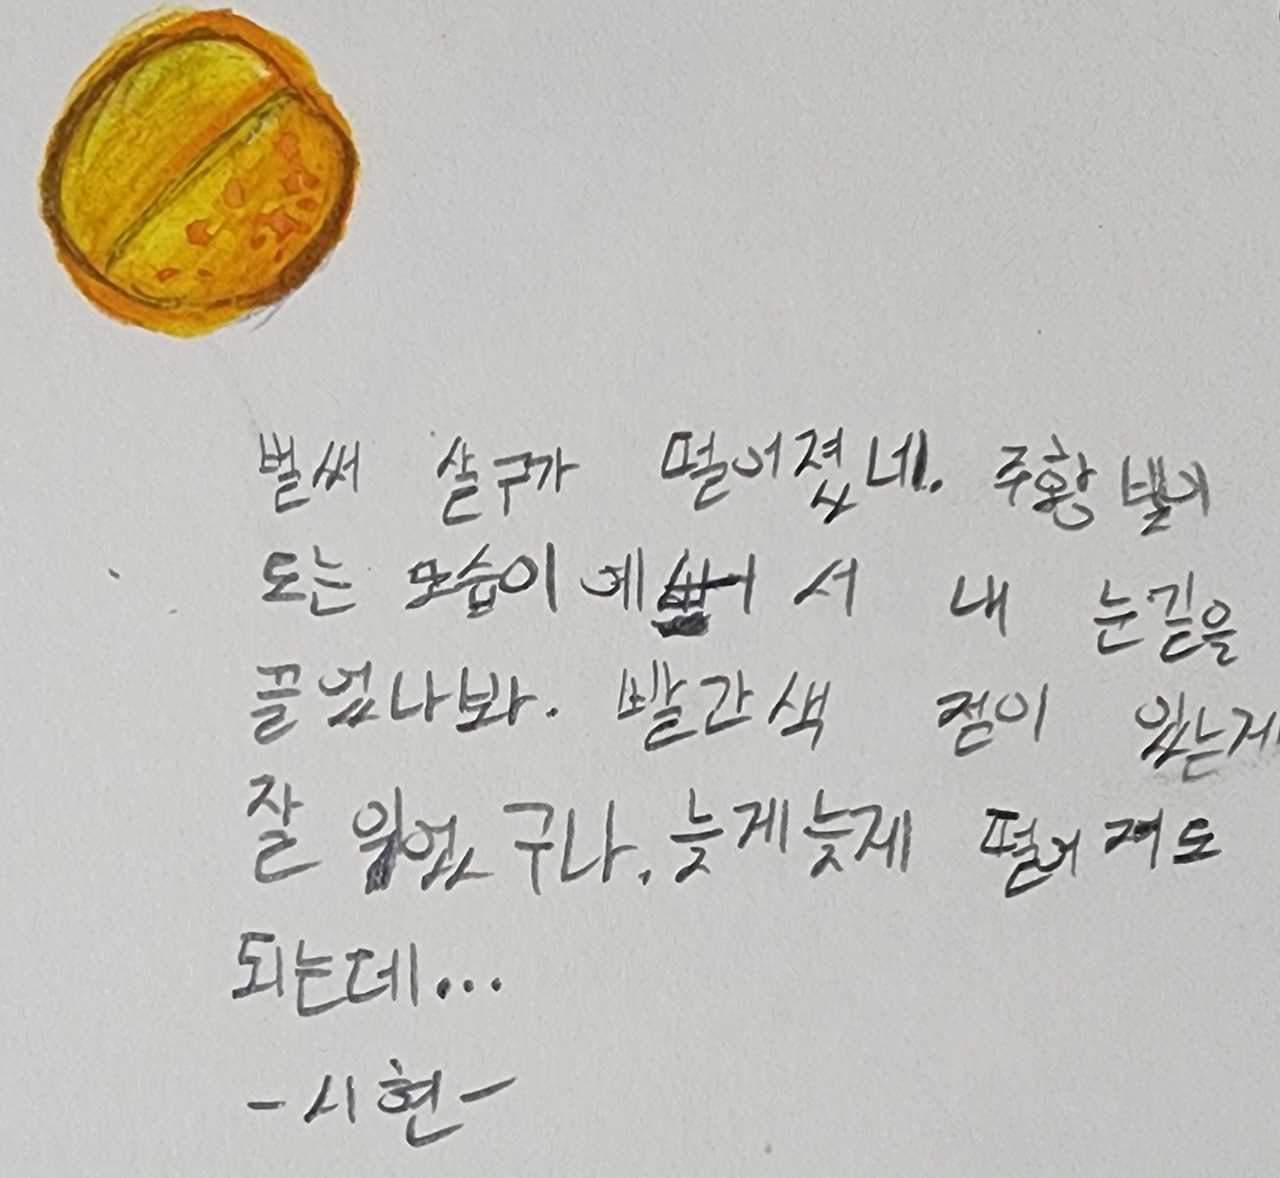 벌써 살구가 떨어졌네. 주황 빛이
도는 모습이 예뻐서 내 눈길을
끌었나봐. 빨간색 점이 있는게
잘 익었구나. 늦게늦게 떨어져도
되는데...
-시현-